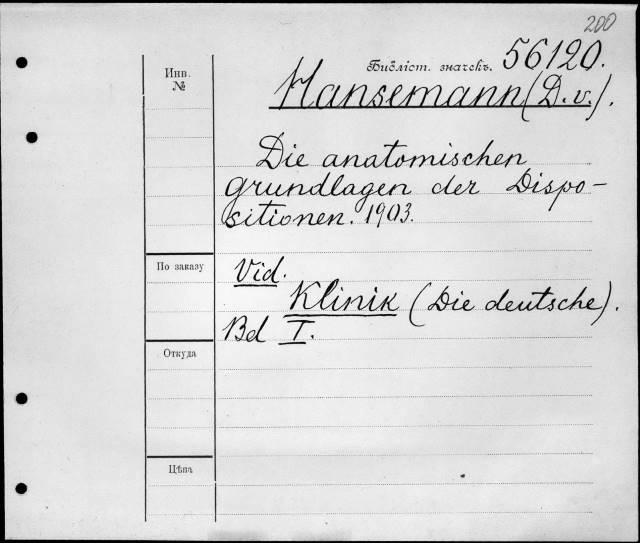 200
Библіот. значекъ. 56120.
Инв. №
Hansemann (D. v.).
Die anatomischen
Grundlagen der Dispo-
sitionen. 1903.
По заказу
Vid.
Klinik (Die deutsche).
Bd I.
Откуда
Цѣна